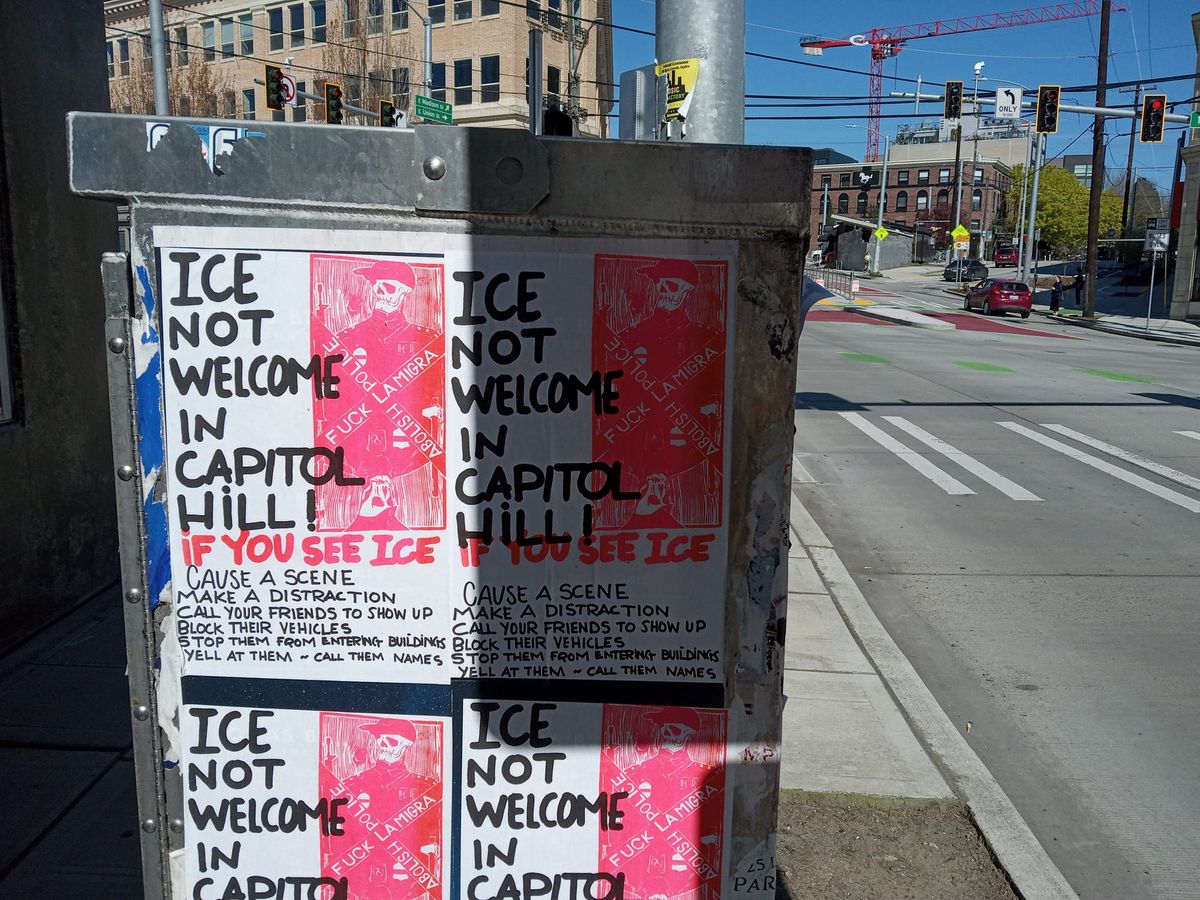 E Madison St
E Union St
ONLY
ICE
NOT
WELCOME
IN
CAPITOL
HiLL!
iF YOU SEE ICE
CAUSE A SCENE
MAKE A DISTRACTION
CALL YOUR FRIENDS TO SHOW UP
BLOCK THEIR VEHICLES
STOP THEM FROM ENTERING BUILDINGS
YELL AT THEM ~ CALL THEM NAMES
FUCK LA MIGRA
ABOLISH POLICE
ICE
NOT
WELCOME
IN
CAPITOL
HILL!
iF YOU SEE ICE
CAUSE A SCENE
MAKE A DISTRACTION
CALL YOUR FRIENDS TO SHOW UP
BLOCK THEIR VEHICLES
STOP THEM FROM ENTERING BUILDINGS
YELL AT THEM ~ CALL THEM NAMES
FUCK LA MIGRA
ABOLISH POLICE
ICE
NOT
WELCOME
IN
CAPITOL
FUCK LA MIGRA
ABOLISH POLICE
ICE
NOT
WELCOME
IN
CAPITOL
FUCK LA MIGRA
ABOLISH POLICE
PAR